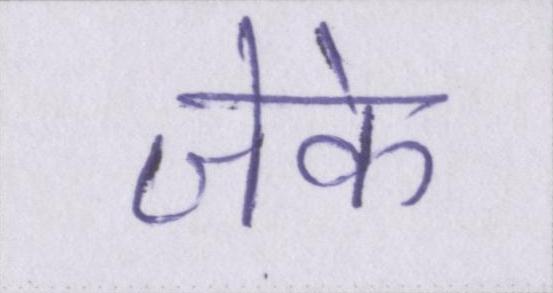 जेके